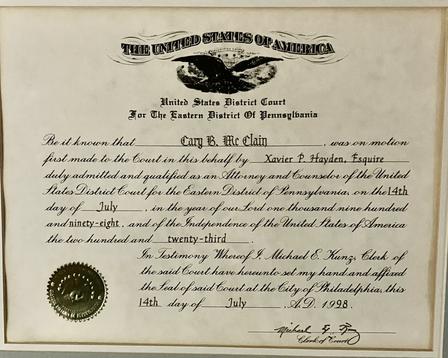 THE UNITED STATES OF AMERICA
United States District Court
For The Eastern District Of Pennsylvania
Be it known that Cary B. Mc Clain, was on motion
first made to the Court in this behalf by Xavier P. Hayden, Esquire
duly admitted and qualified as an Attorney and Counselor of the United
States District Court for the Eastern District of Pennsylvania, on the 14th
day of July, in the year of our Lord one thousand nine hundred
and ninety-eight, and of the Independence of the United States of America
the two hundred and twenty-third.
In Testimony Whereof I, Michael E. Kunz, Clerk of
the said Court have hereunto set my hand and affixed
the Seal of said Court at the City of Philadelphia, this
14th day of July, A.D. 1998.
Clerk of Court